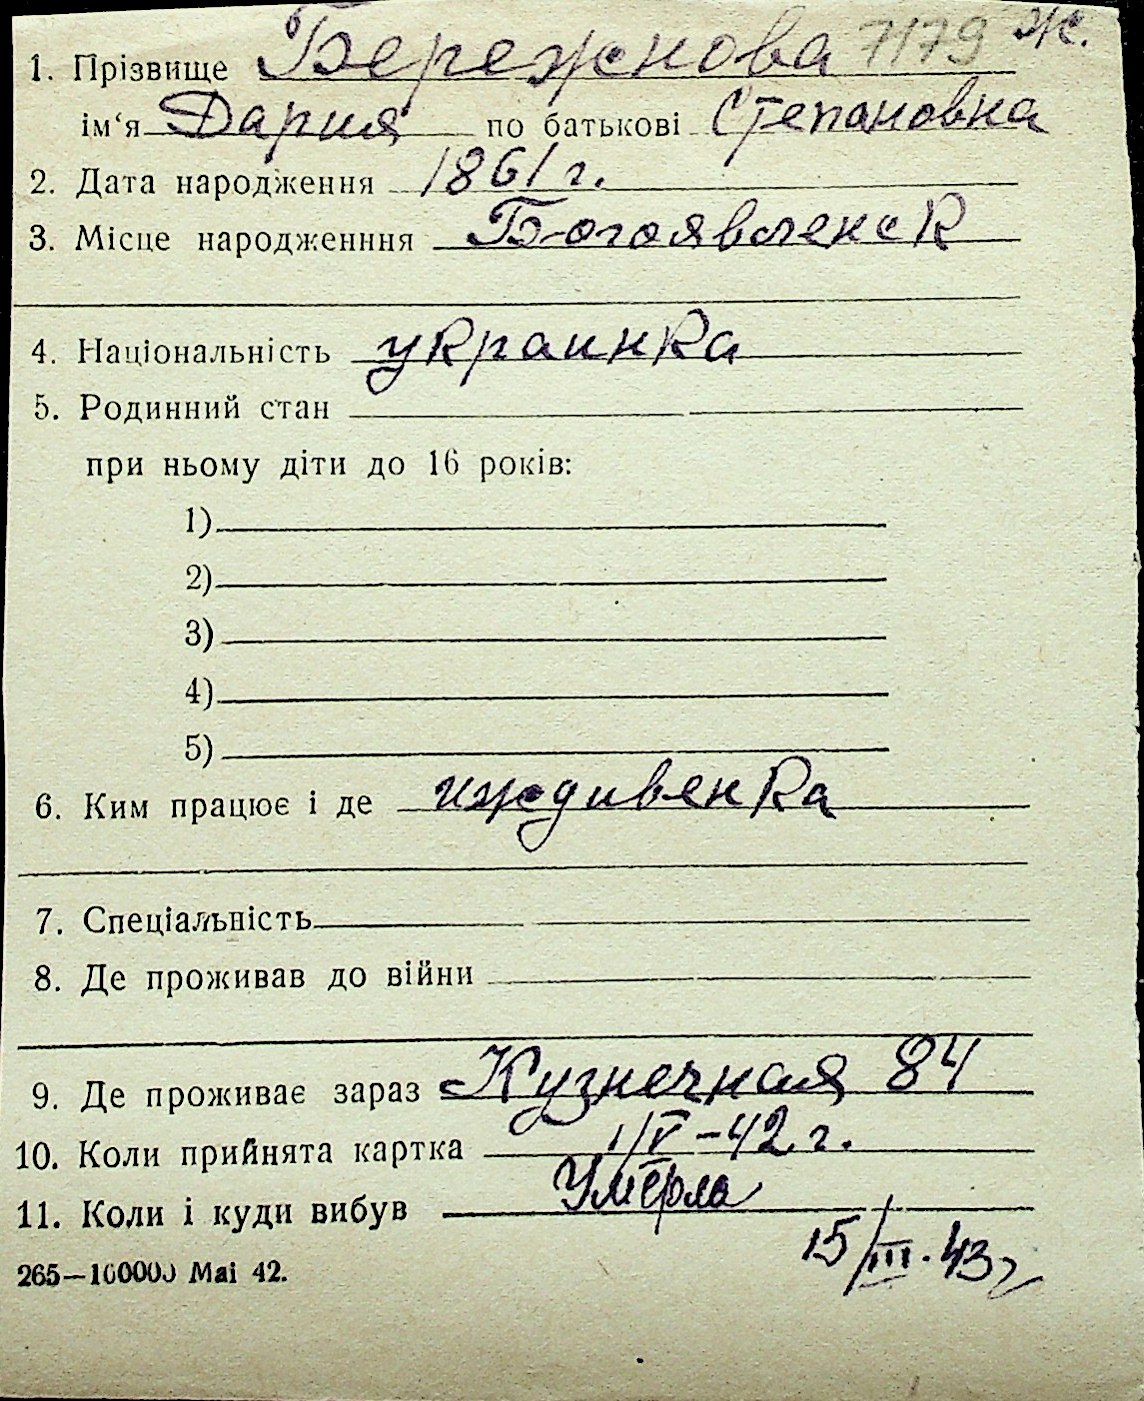 1. Прізвище Бережнова 7179 ж.
ім'я Дария по батькові Степановна
2. Дата народження 1861 г.
3. Місце народженння Богоявленск
4. Національність украинка
5. Родинний стан
при ньому діти до 16 років:
1)
2)
3)
4)
5)
6. Ким працює і де иждивенка
7. Спеціальність
8. Де проживав до війни
9. Де проживає зараз Кузнечная 84
10. Коли прийнята картка 1/V-42 г.
11. Коли і куди вибув Умерла
15/III.43 г
265—100000 Mai 42.